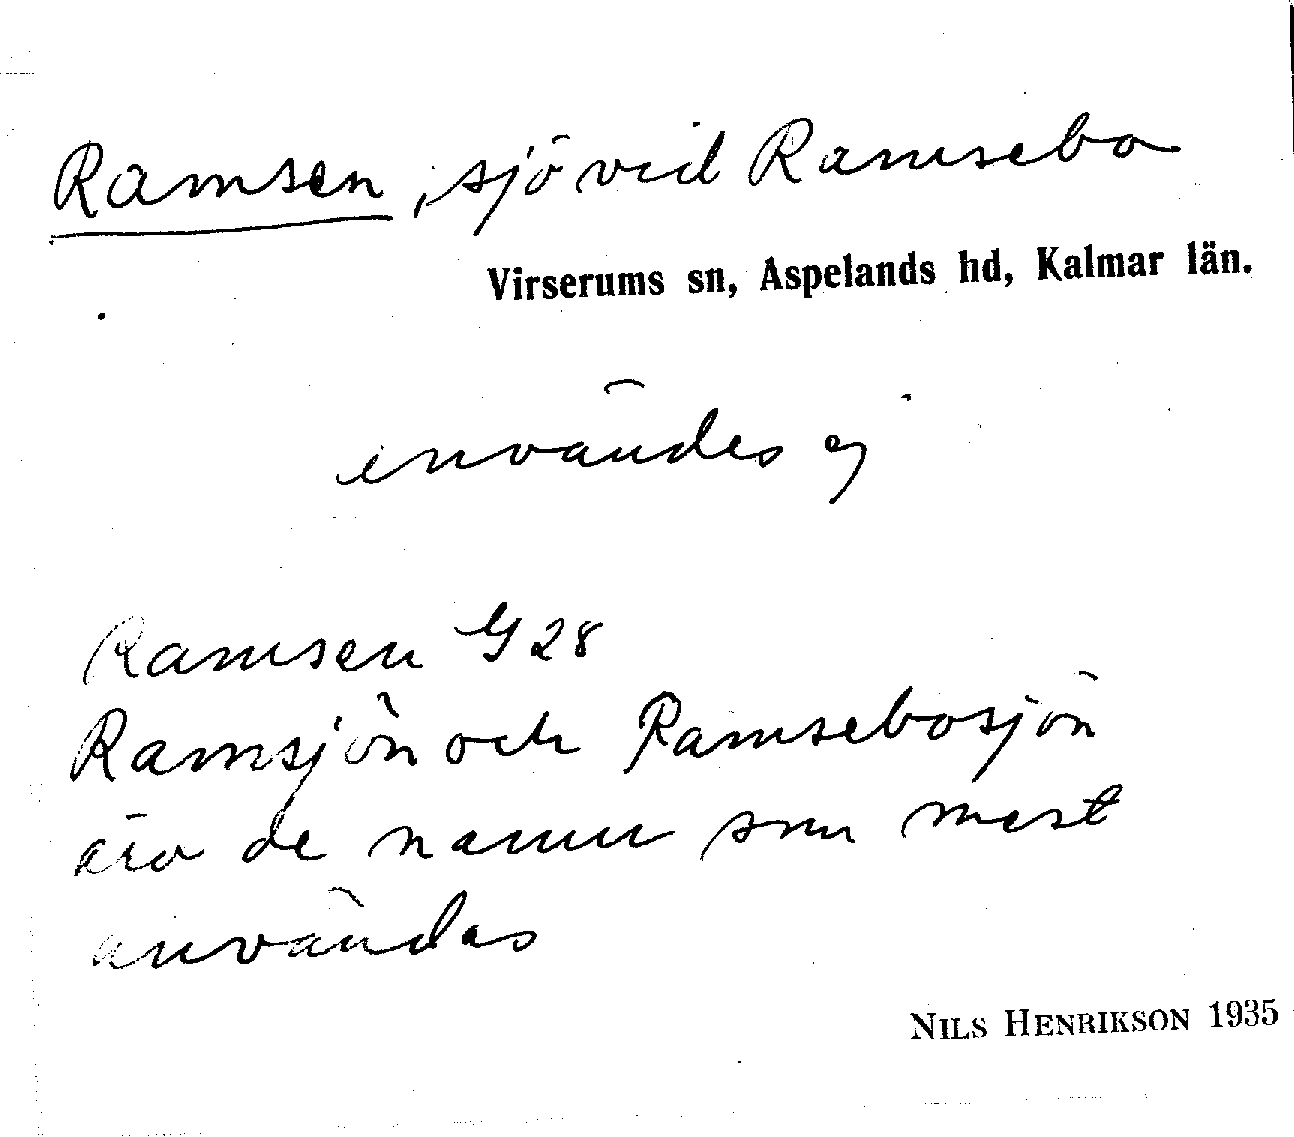 Ramsen, sjö vid Ramsebo
Virserums sn, Aspelands hd, Kalmar län.
användes ej
Ramsen G 28
Ramsjön och Ramsebosjön
äro de namn som mest
användas
NILS HENRIKSON 1935